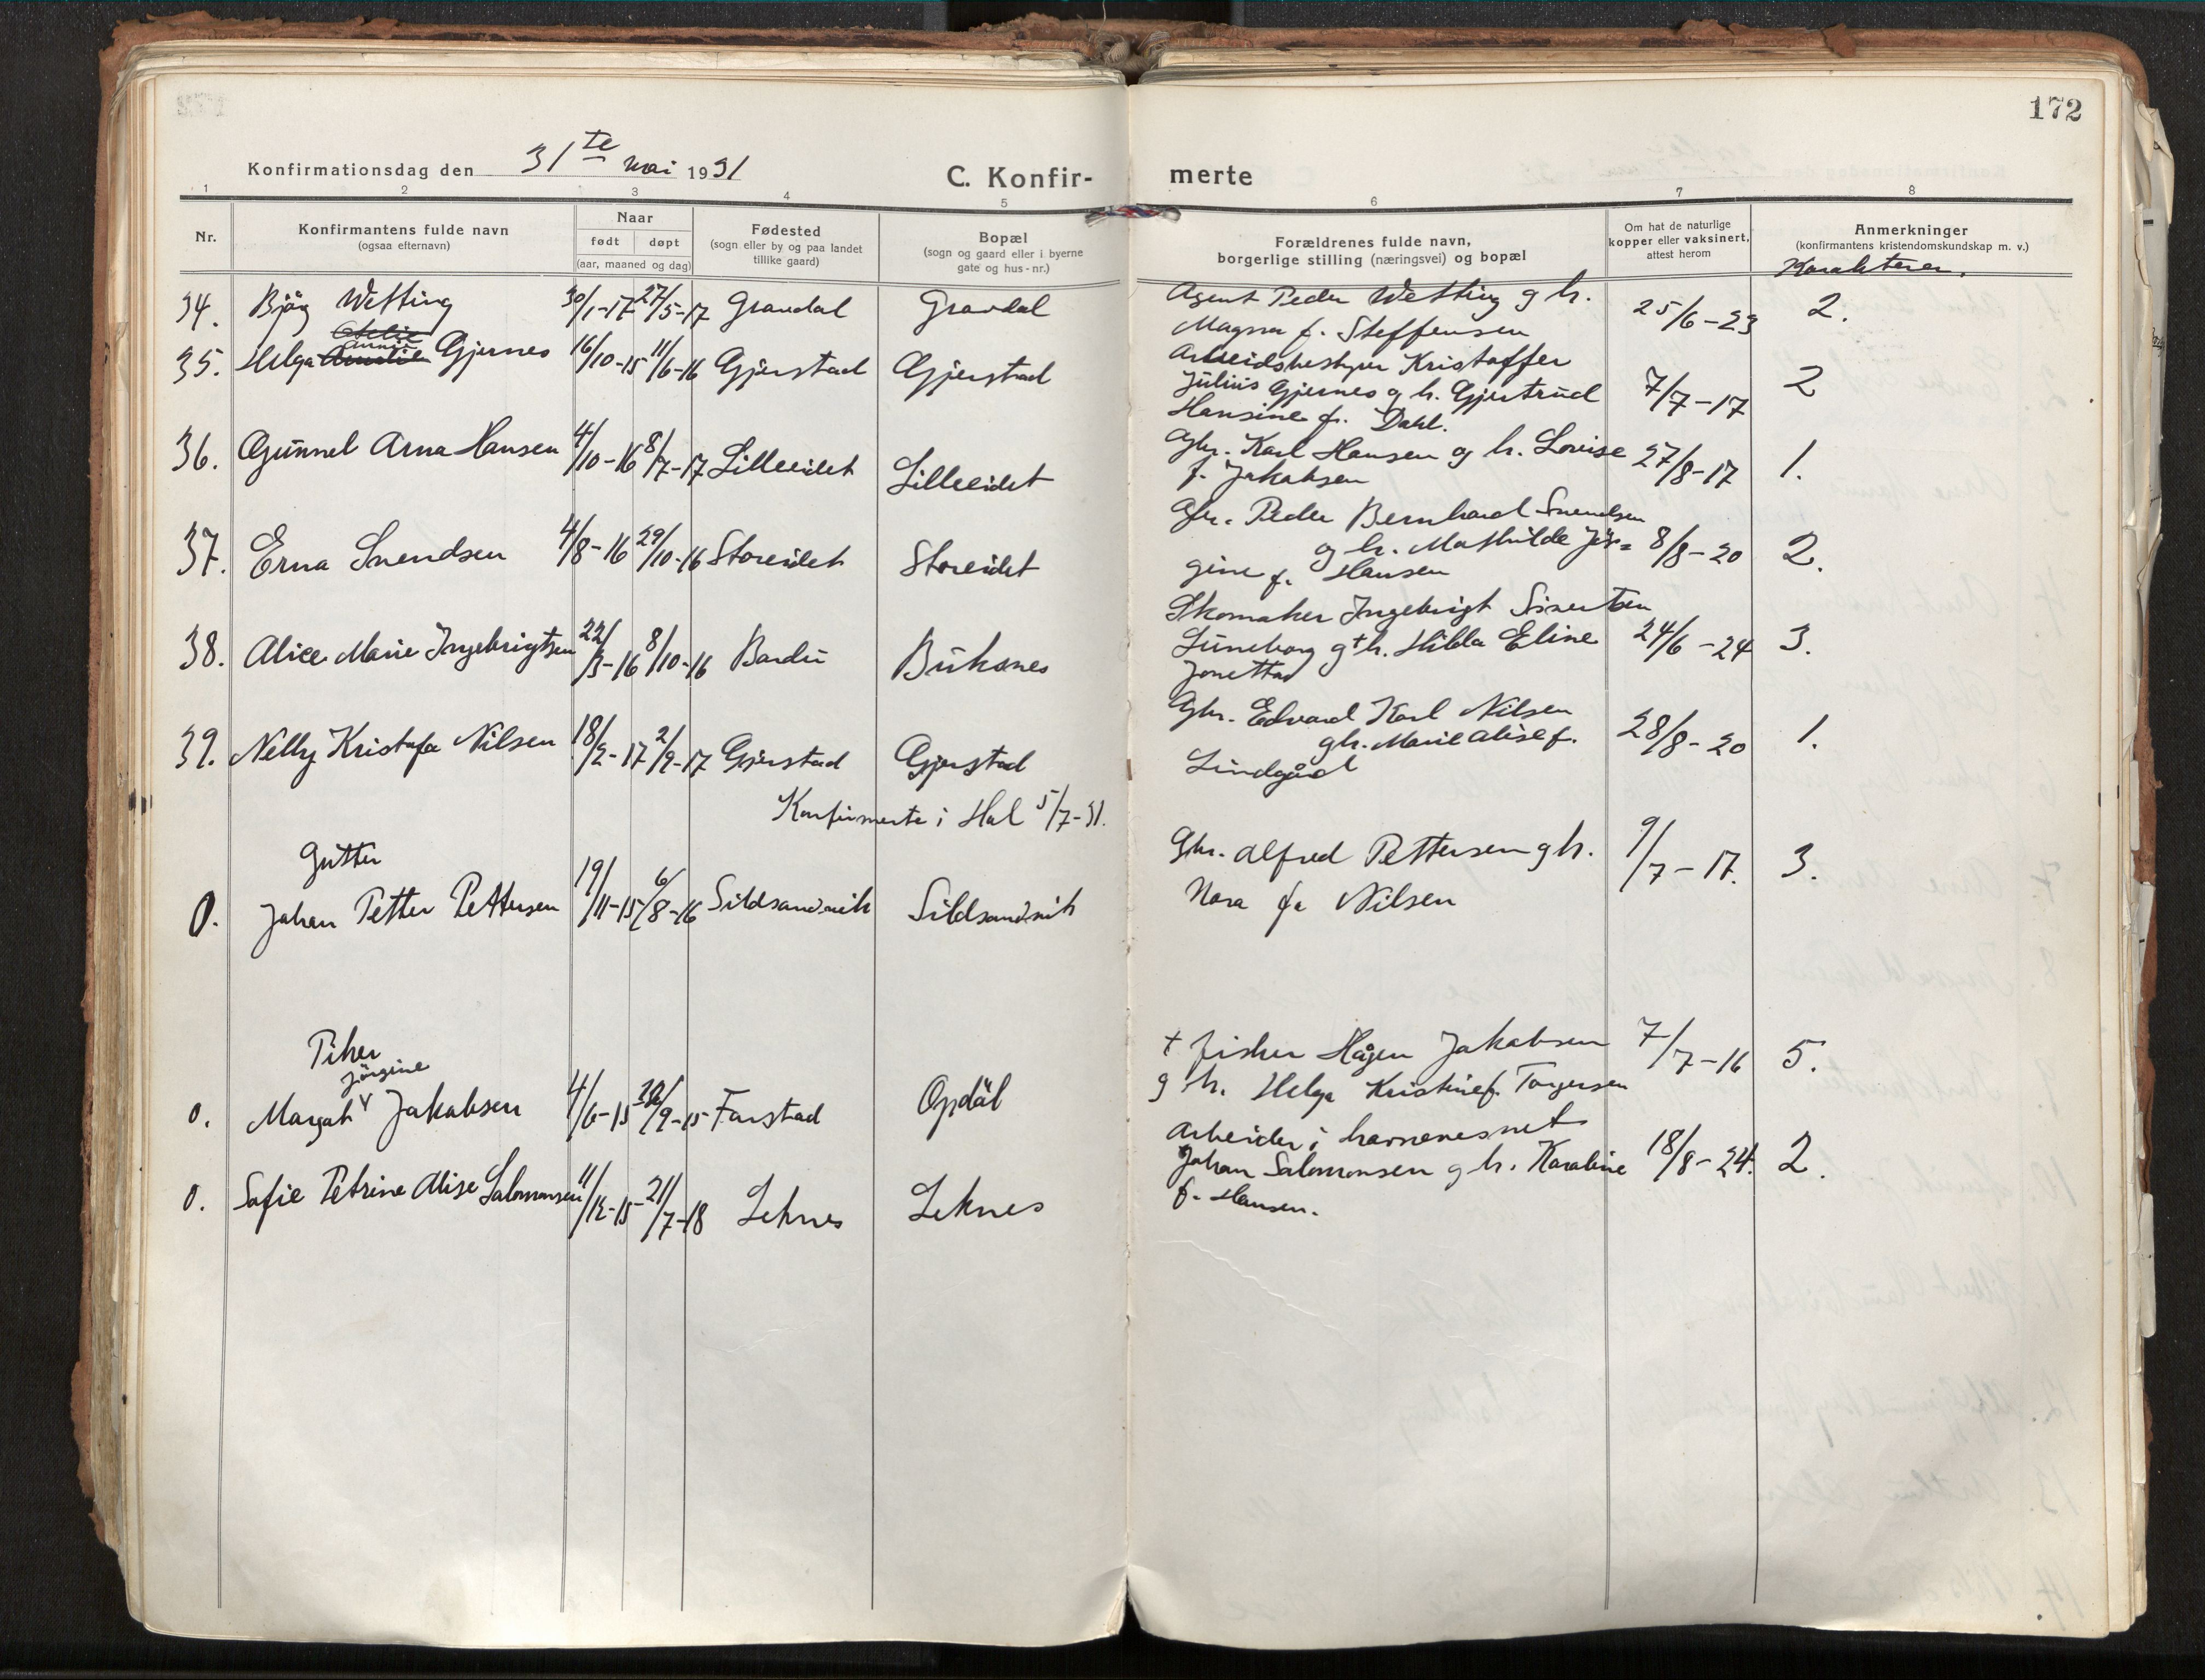 172
Konfirmationsdag den 31te mai 1931
C. Konfir-
merte
1 2 3 4 5 6 7 8
Nr.
Konfirmantens fulde navn
(ogsaa efternavn)
Naar
født døpt
(aar, maaned og dag)
Fødested
(sogn eller by og paa landet
tillike gaard)
Bopæl
(sogn og gaard eller i byerne
gate og hus-nr.)
Forældrenes fulde navn,
borgerlige stilling (næringsvei) og bopæl
Om hat de naturlige
kopper eller vaksinert,
attest herom
Anmerkninger
(konfirmantens kristendomskundskap m. v.)
Karakterer.
34. Bjög Wetting 30/1-17 27/5-17 Gravdal Gravdal
Agent Peder Wetting g h.
Magna f. Steffensen
25/6-23 2.
35. Helga Gjernes 16/10-15 11/6-16 Gjerstad Gjerstad
Arbeidsbestyrer Kristoffer
Julius Gjernes g h. Gjertrud
Hansine f. Dahl.
7/7-17 2
36. Gunnel Arna Hansen 4/10-16 8/7-17 Lilleeidet Lilleeidet
Gbr. Karl Hansen og h. Lovise
f. Jakobsen
27/8-17 1.
37. Erna Svendsen 4/8-16 29/10-16 Storeidet Storeidet
Gbr. Peder Bernhard Svendsen
og h. Mathilde Jör=
gine f. Hansen
8/8-20 2.
38. Alice Marie Ingebrigtsen 22/3-16 8/10-16 Bardu Buksnes
Skomaker Ingebrigt Sivertsen
Luneborg g + h. Hilda Eline
Jonetta
24/6-24 3.
39. Nelly Kristofa Nilsen 18/2-17 2/9-17 Gjerstad Gjerstad
Gbr. Edvard Karl Nilsen
g h. Marie Alise f.
Lindgård
28/8-20 1.
Konfirmerte i Hol 5/7-31.
Gutter
0. Johan Petter Pettersen 19/11-15 6/8-16 Sildsandvik Sildsandvik
Gbr. Alfred Pettersen g h.
Nora f. Nilsen
9/7-17. 3.
Piker
Jörgine
0. Margot Jakobsen 4/6-15 26/9-15 Farstad Opdöl
+ fisker Hågen Jakobsen
g h. Helga Kristine f. Torgersen
7/7-16 5.
0. Sofie Petrine Alise Salomonsen 11/12-15 21/7-18 Leknes Leknes
Arbeider i havnevesnet
Johan Salomonsen g h. Karoline
f. Hansen.
18/8-24. 2.